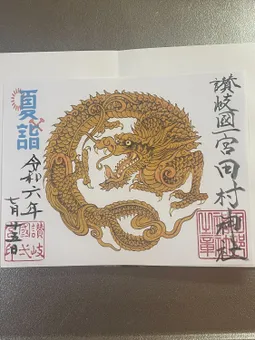 讃岐國一宮田村神社
夏詣
令和六年
七月
讃岐